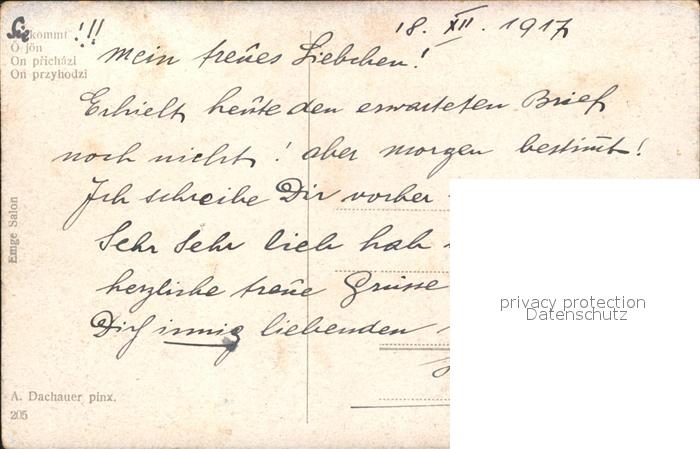 Sie kommt !!!
Ö jön
On přichází
On przyhodzi
18. XII. 1917
Mein treues Liebchen!
Erhielt heute den erwarteten Brief
noch nicht! aber morgen bestimt!
Ich schreibe Dir vorher
Sehr Sehr lieb hab
herzliche treue Grüsse
Dich innig liebenden
Emge Salon
A. Dachauer pinx.
205
privacy protection
Datenschutz